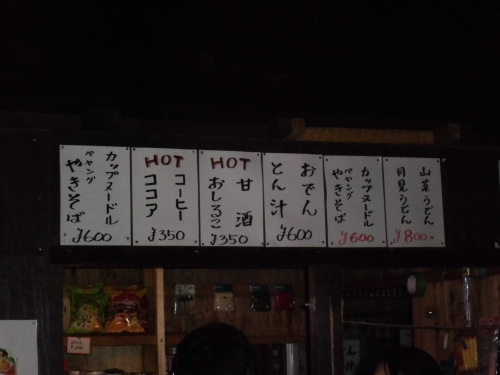 カップヌードル
ペヤング
やきそば
¥600
HOT
コーヒー
ココア
¥350
HOT
甘酒
おしるこ
¥350
おでん
とん汁
¥600
カップヌードル
ペヤング
やきそば
¥600
山菜うどん
月見うどん
¥800-